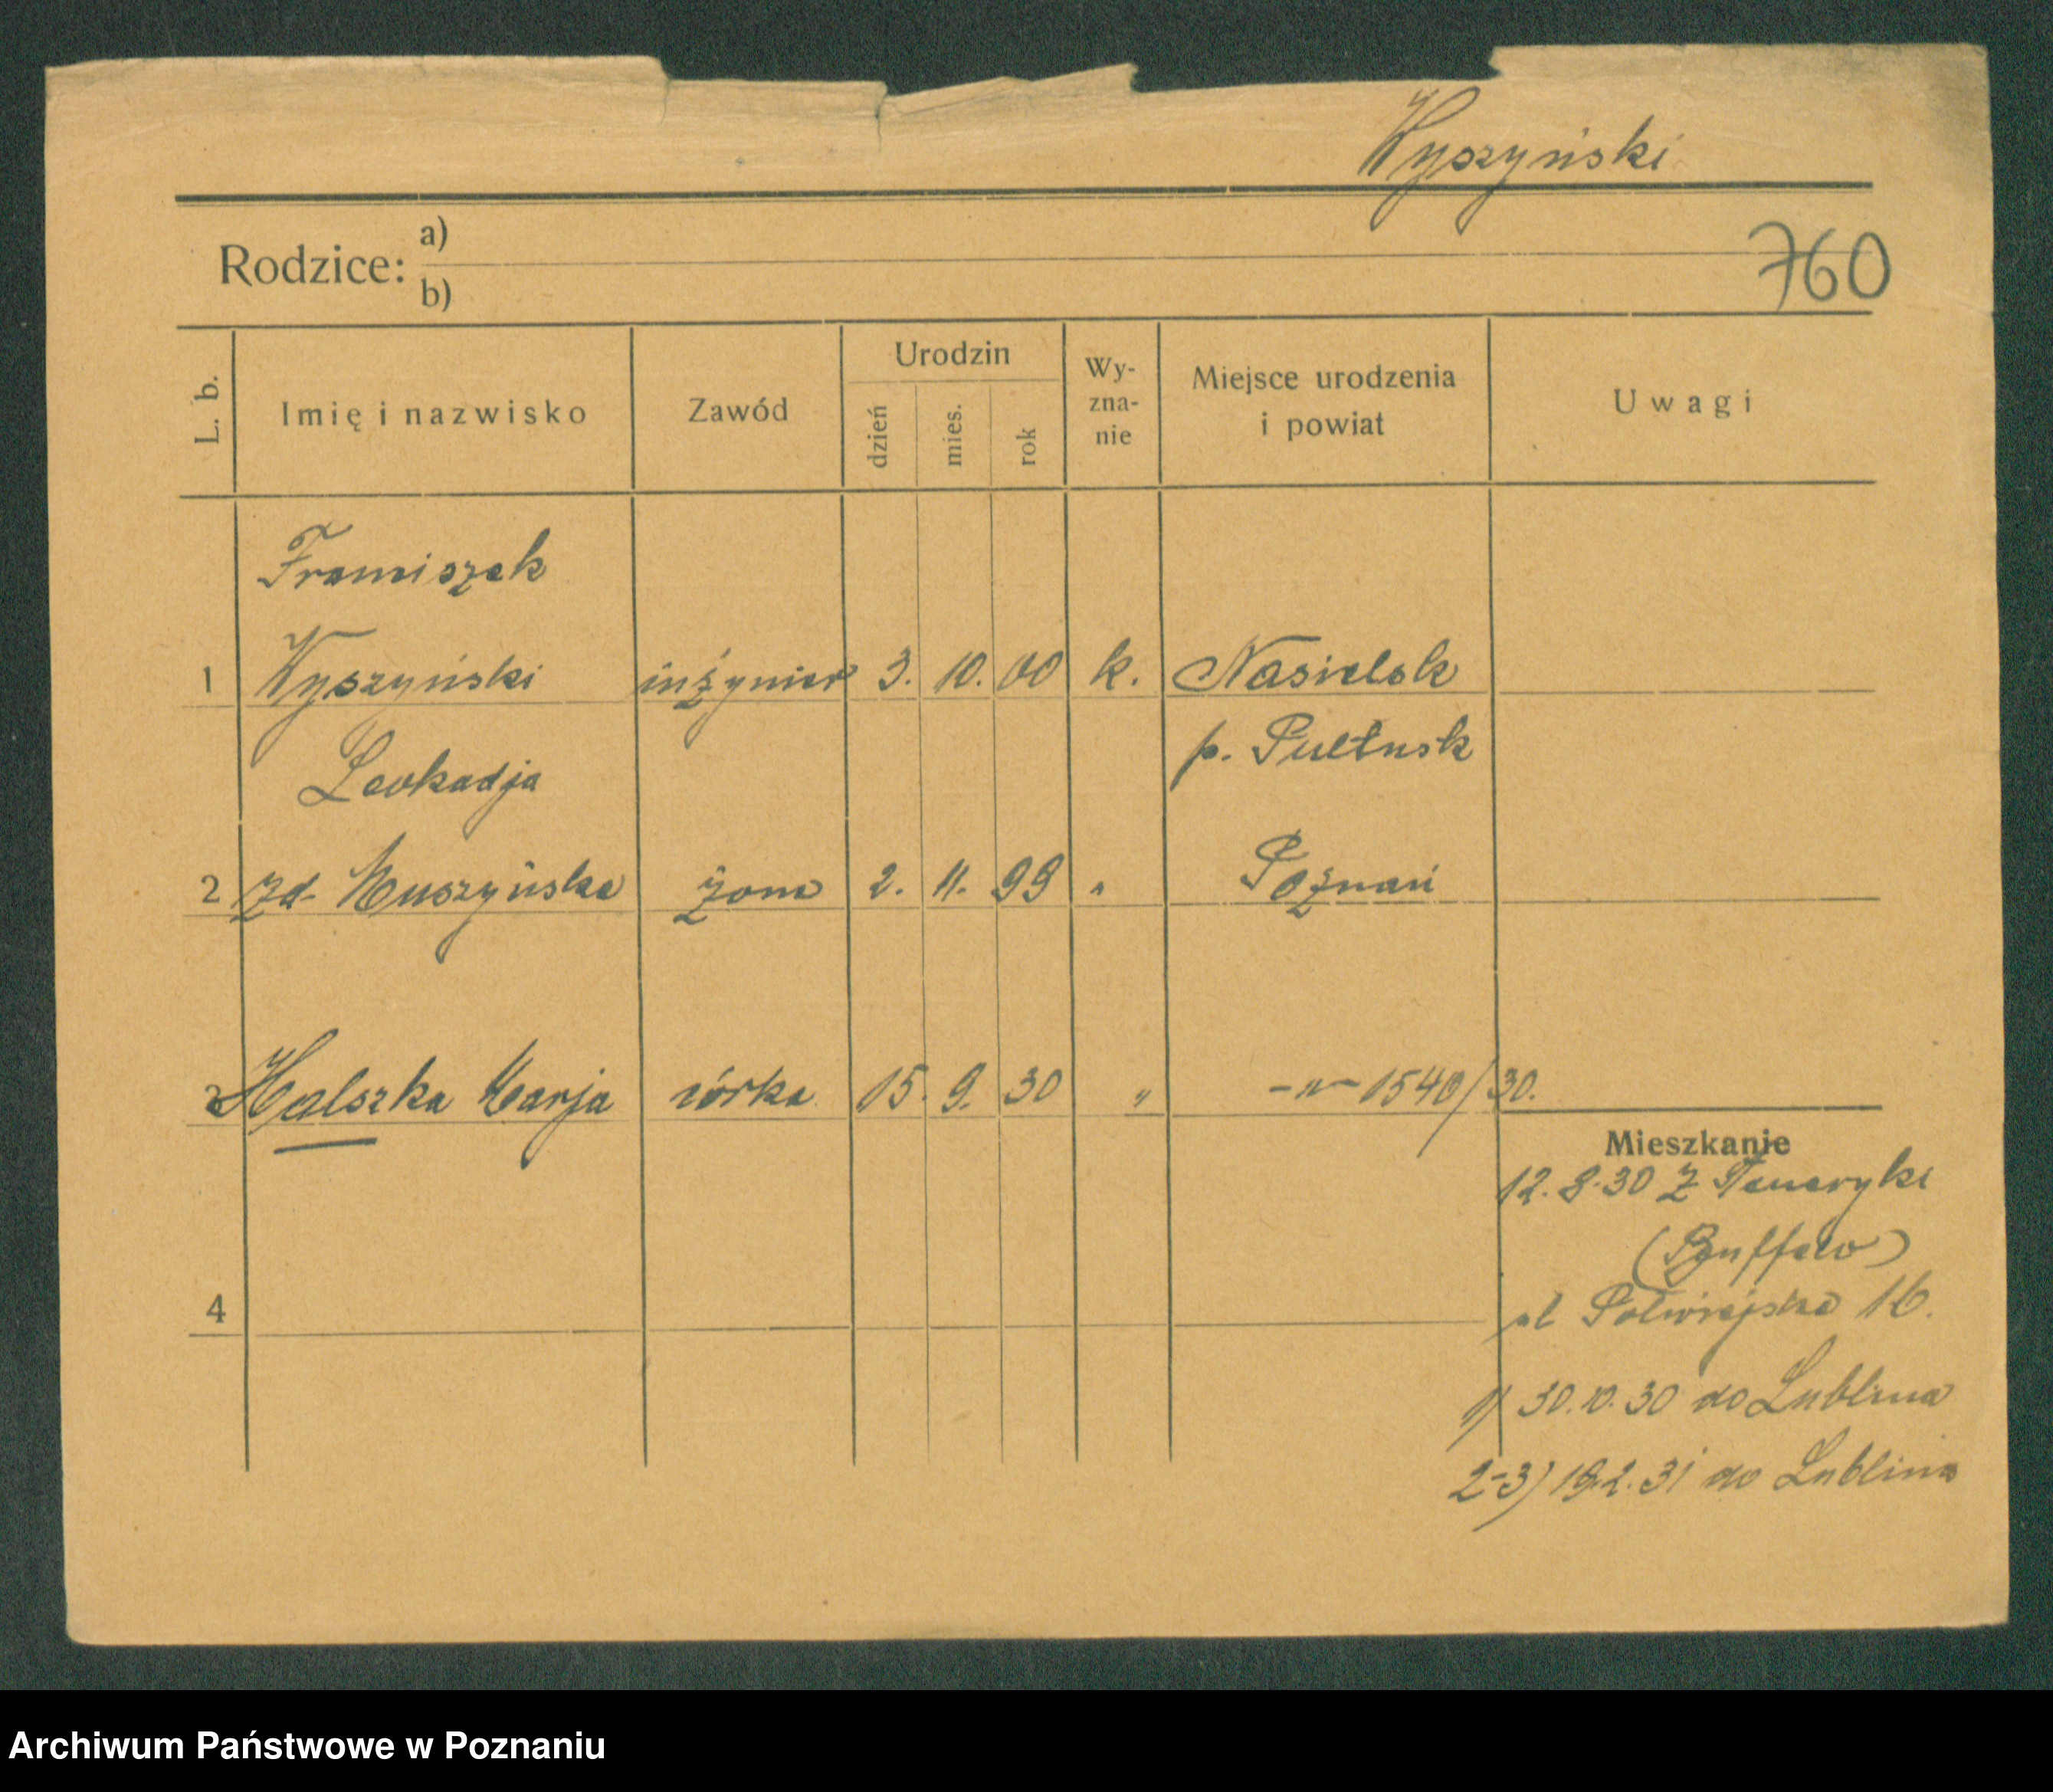 Wyszyński
Rodzice: a)
b)
760
L. b. Imię i nazwisko Zawód Urodzin dzień mies. rok Wy-zna-nie Miejsce urodzenia i powiat Uwagi
Franciszek
1 Wyszyński inżynier 3. 10. 00 k. Nasielsk
p. Pułtusk
Leokadja
2 zd. Muszyńska żona 2. 11. 99 " Poznań
3 Halszka Marja córka 15. 9. 30 " -"- 1540/30.
Mieszkanie
12. 8. 30 z Ameryki
(Buffalo)
ul Półwiejska 16.
4
1) 30. 10. 30 do Lublina
2-3) 19.2.31 do Lublina
Archiwum Państwowe w Poznaniu